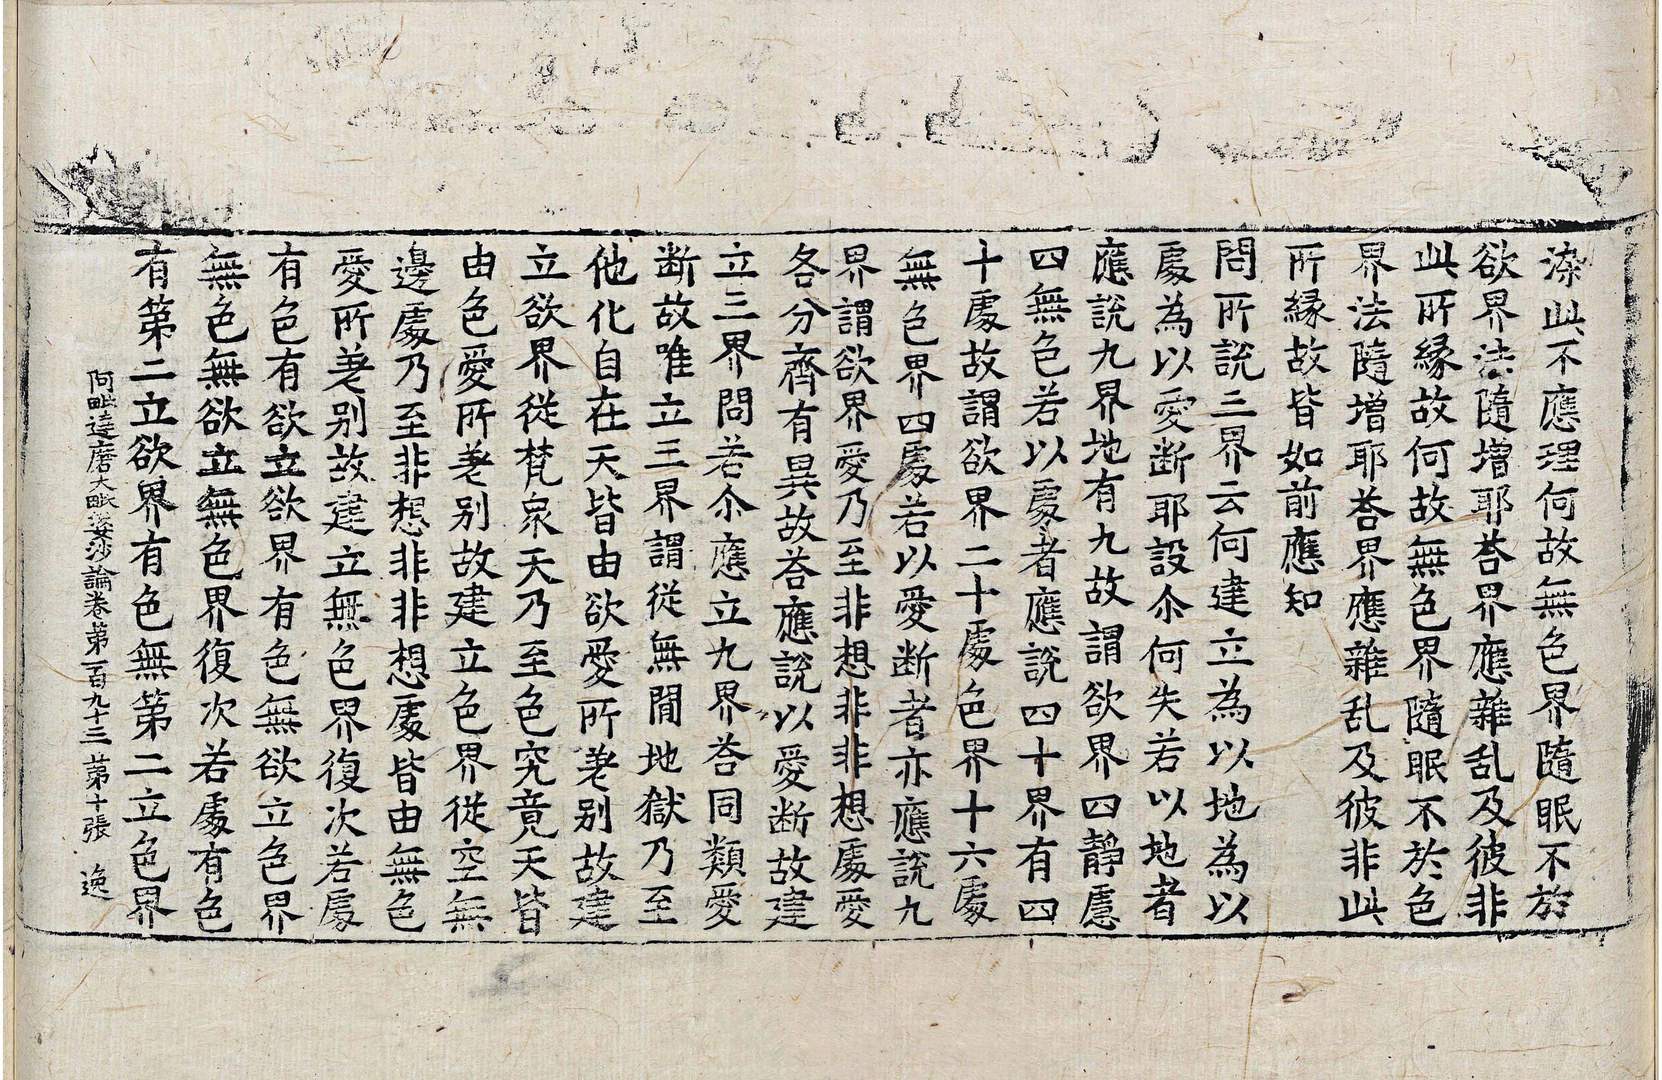 染此不應理何故無色界隨眠不於
欲界法隨增耶荅界應雜乱及彼非
此所縁故何故無色界隨眠不於色
界法隨增耶荅界應雜乱及彼非此
所縁故皆如前應知
問所說三界云何建立為以地為以
處為以愛断耶設尒何失若以地者
應說九界地有九故謂欲界四靜慮
四無色若以處者應說四十界有四
十處故謂欲界二十處色界十六處
無色界四處若以愛断者亦應說九
界謂欲界愛乃至非想非非想處愛
各分齊有異故荅應說以愛断故建
立三界問若尒應立九界荅同類愛
断故唯立三界謂從無間地獄乃至
他化自在天皆由欲愛所差别故建
立欲界從梵衆天乃至色究竟天皆
由色愛所差别故建立色界從空無
邊處乃至非想非非想處皆由無色
愛所差别故建立無色界復次若處
有色有欲立欲界有色無欲立色界
無色無欲立無色界復次若處有色
有第二立欲界有色無第二立色界
阿毗達磨大毗婆沙論卷第一百九十三 第十張 逸